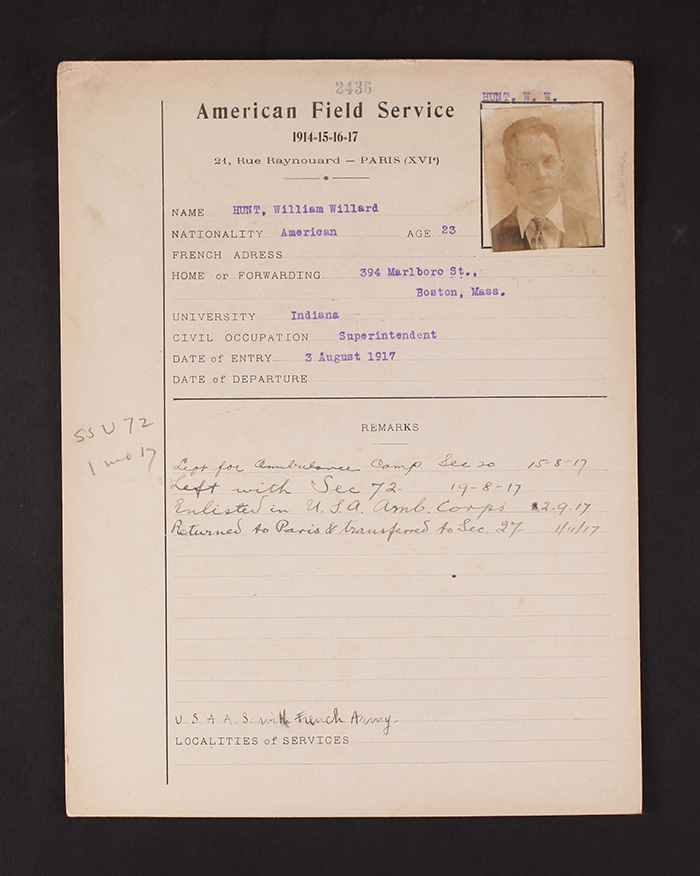 2436
HUNT, W. W.
American Field Service
1914-15-16-17
21, Rue Raynouard — PARIS (XVIe)
NAME HUNT, William Willard
NATIONALITY American AGE 23
FRENCH ADRESS
HOME or FORWARDING 394 Marlboro St.,
Boston, Mass.
UNIVERSITY Indiana
CIVIL OCCUPATION Superintendent
DATE of ENTRY 3 August 1917
DATE of DEPARTURE
REMARKS
SSU 72
1 mo 17
Left for Ambulance Camp Sec 20 15-8-17
Left with Sec 72. 19-8-17
Enlisted in U.S.A. Amb. Corps 2.9.17
Returned to Paris & transferred to Sec. 27 1/11/17
U.S.A.A.S. with French Army.
LOCALITIES of SERVICES